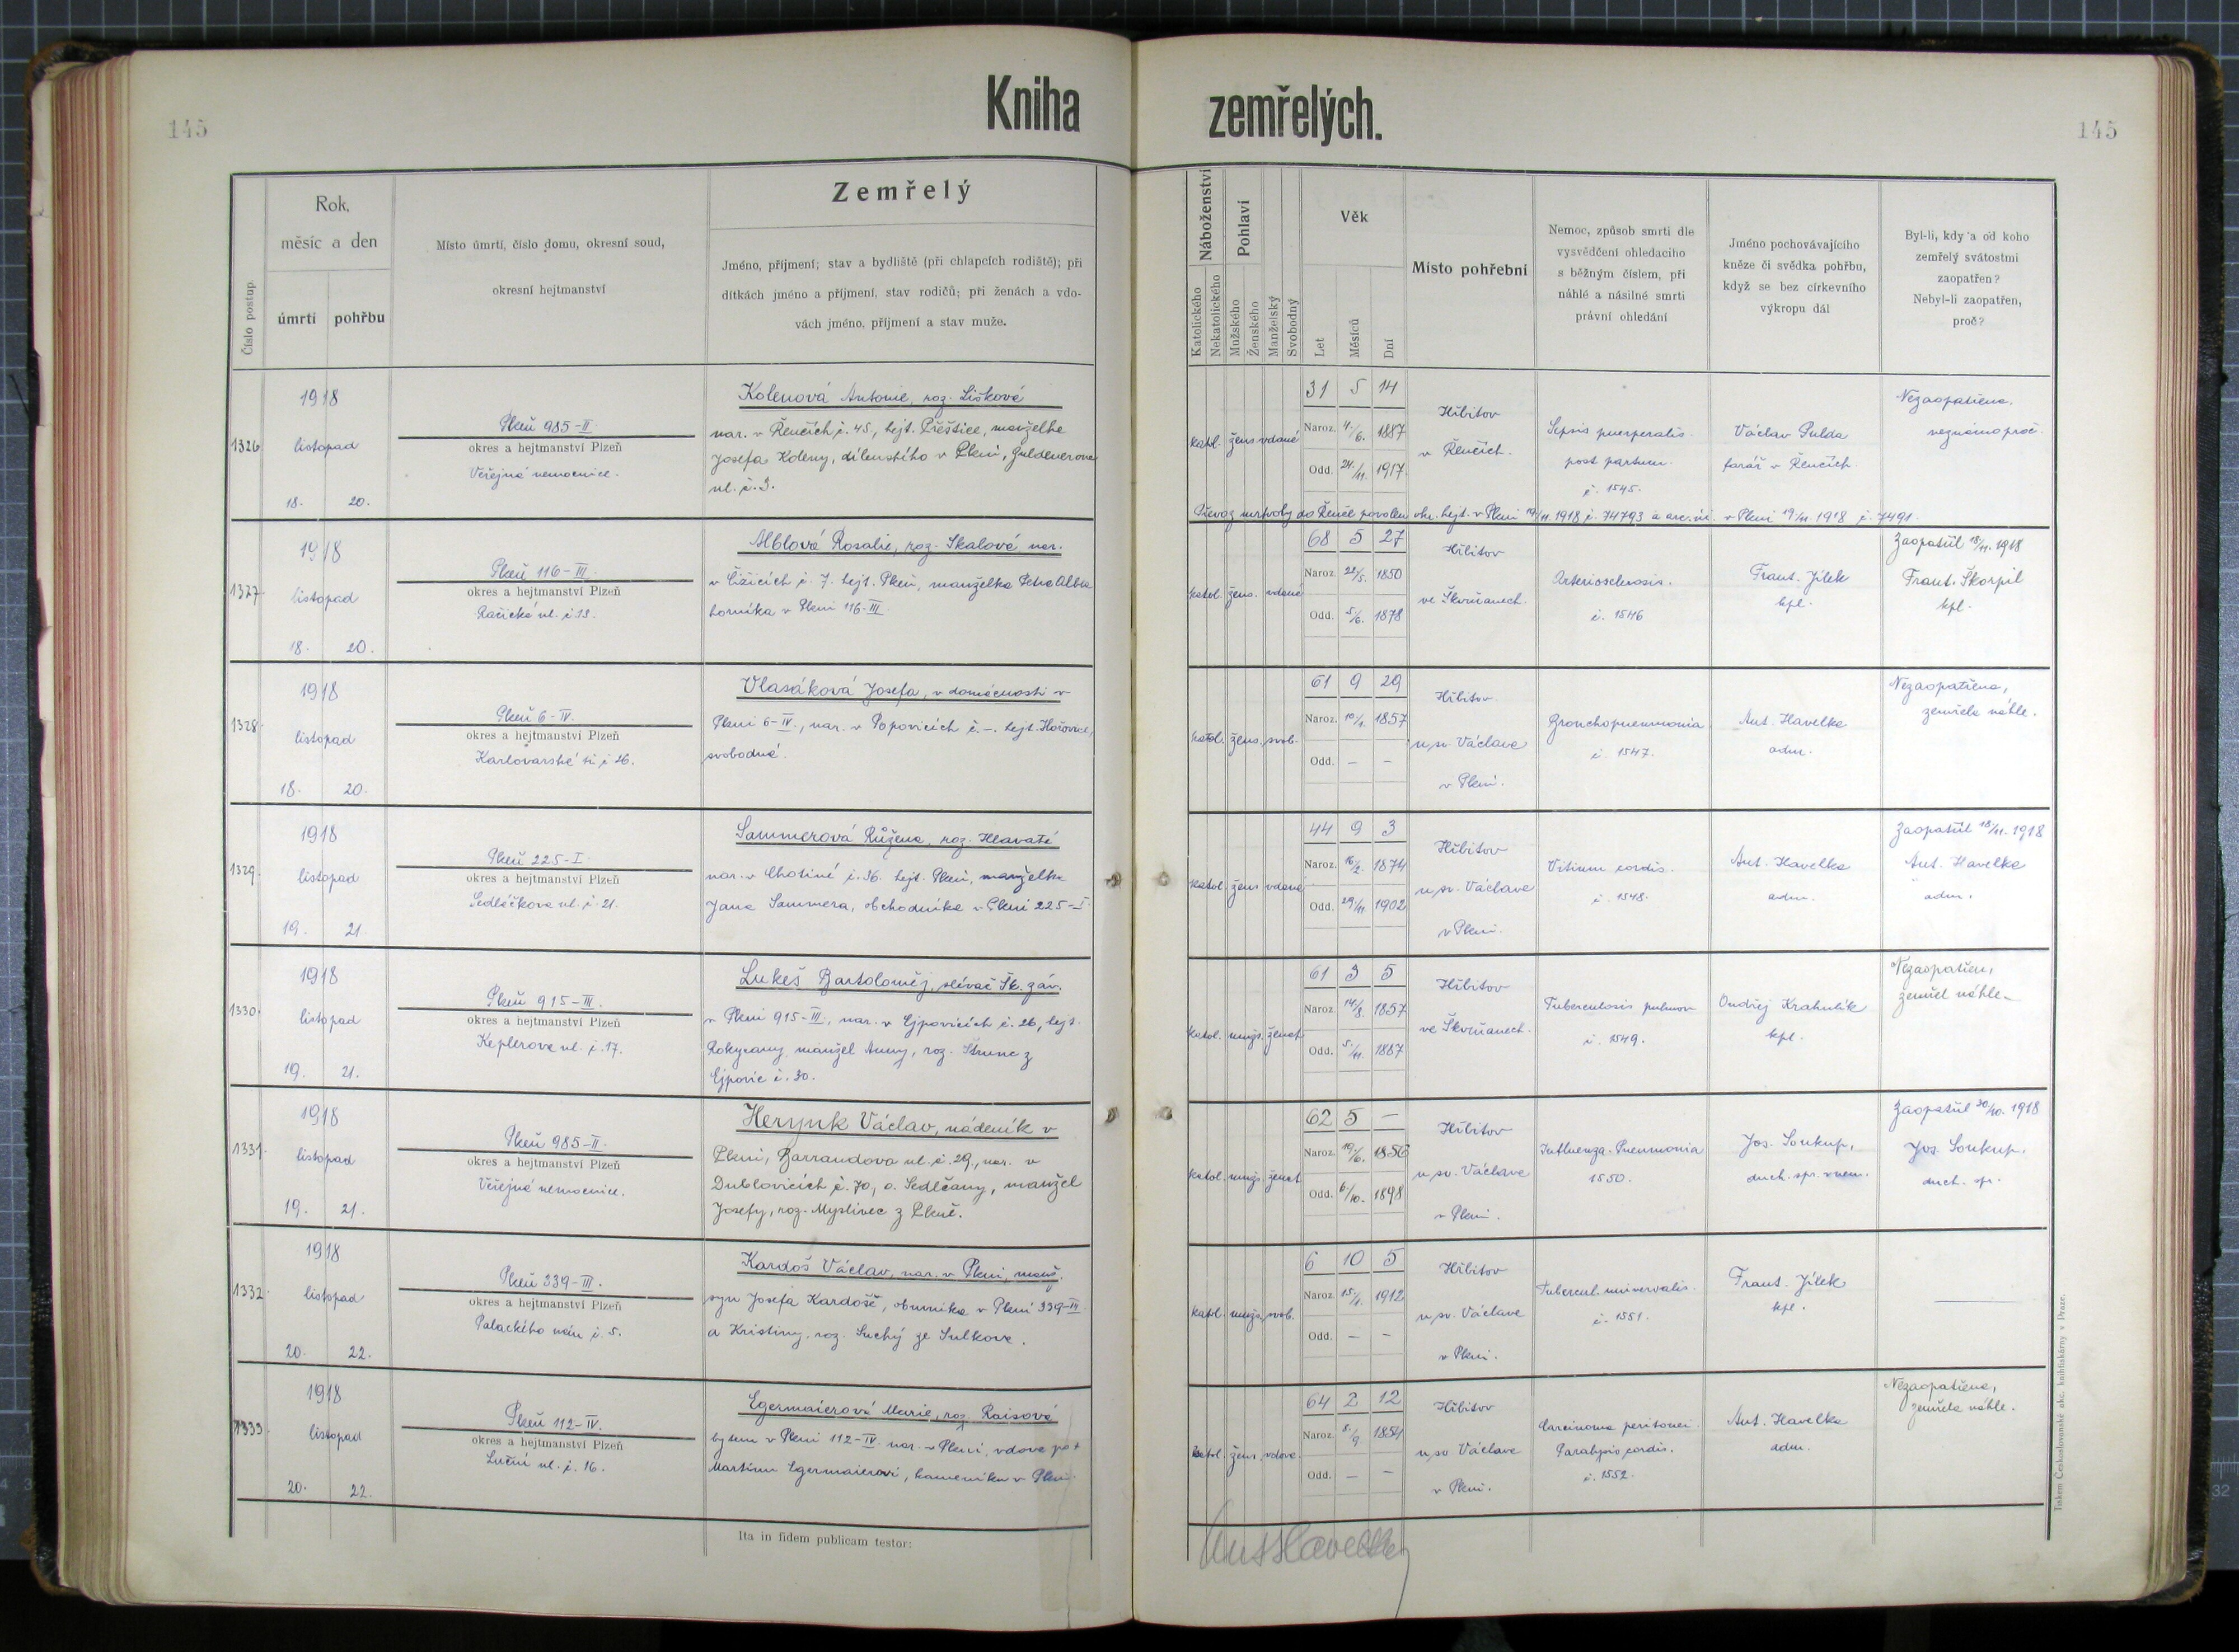 145
Kniha zemřelých.
145
Číslo postup.
Rok, měsíc a den
úmrtí
pohřbu
Místo úmrtí, číslo domu, okresní soud,
okresní hejtmanství
Zemřelý
Jméno, příjmení; stav a bydliště (při chlapcích rodiště); při
dítkách jméno a příjmení, stav rodičů; při ženách a vdo-
vách jméno, příjmení a stav muže.
Náboženství
Katolického
Nekatolického
Pohlaví
Mužského
Ženského
Manželský
Svobodný
Věk
Let
Měsíců
Dní
Místo pohřební
Nemoc, způsob smrti dle
vysvědčení ohledacího
s běžným číslem, při
náhlé a násilné smrti
právní ohledání
Jméno pochovávajícího
kněze či svědka pohřbu,
když se bez církevního
výkropu dál
Byl-li, kdy a od koho
zemřelý svátostmi
zaopatřen?
Nebyl-li zaopatřen,
proč?
1326.
1918
listopad
18. 20.
Plzeň 985-II
okres a hejtmanství Plzeň
Veřejná nemocnice.
Kolenová Antonie, roz. Lišková
nar. v Řenčích č. 45, hejt. Přeštice, manželka
Josefa Koleny, dílenského v Plzni, Guldenerova
ul. č. 3.
katol. žens. vdaná
31 5 14
Naroz. 4./6. 1887
Odd. 24./11. 1917.
Hřbitov
v Řenčích.
Sepsis puerperalis
post partum.
č. 1545.
Václav Gulda
farář v Řenčích.
Nezaopatřena,
neznámo proč.
Převoz mrtvoly do Řenče povolen okr. hejt. v Plzni 19/11 1918 č. 74793 a v Plzni 19/11. 1918 č. 7491.
1327.
1918
listopad
18. 20.
Plzeň 116-III.
okres a hejtmanství Plzeň
ul. č. 13.
Alblová Rosalie, roz. Skalová nar.
v Čižicích č. 7. hejt. Plzeň, manželka Petra Albla
horníka v Plzni 116-III
katol. žens. vdaná
68 5 27
Naroz. 22/5. 1850
Odd. 5/6. 1878
Hřbitov
ve Škvrňanech.
Arteriosclerosis.
č. 1546
Frant. Jílek
kpl.
Zaopatřil 18/11. 1918
Frant. Škorpil
kpl.
1328.
1918
listopad
18. 20.
Plzeň 6-IV.
okres a hejtmanství Plzeň
Karlovarská tř. č. 26.
Vlasáková Josefa, v domácnosti v
Plzni 6-IV., nar. v Popovicích č. –. hejt. Hořovice,
svobodná.
katol. žens. svob.
61 9 29
Naroz. 1857
Odd. – –
Hřbitov
u sv. Václava
v Plzni.
Bronchopneumonia
č. 1547.
Ant. Havelka
adm.
Nezaopatřena,
zemřela náhle.
1329.
1918
listopad
19. 21.
Plzeň 225-I.
okres a hejtmanství Plzeň
Sedláčkova ul. č. 21.
Sammerová Růžena, roz. Hlavatá
nar. v Chotiné č. 36. hejt. Plzeň, manželka
Jana Sammera, obchodníka v Plzni 225-I.
katol. žens. vdaná
44 9 3
Naroz. 16/2. 1874
Odd. 29/11. 1902
Hřbitov
u sv. Václava
v Plzni.
Vitium cordis.
č. 1548.
Ant. Havelka
adm.
Zaopatřil 18/11. 1918
Ant. Havelka
adm.
1330.
1918
listopad
19. 21.
Plzeň 915-III.
okres a hejtmanství Plzeň
Keplerova ul. č. 17.
Lukeš Bartoloměj, slévač Šk. záv.
v Plzni 915-III., nar. v Ejpovicích č. 26, hejt.
Rokycany, manžel Anny, roz. Štrunc z
Ejpovic č. 30.
katol. mužs. ženat
61 3 5
Naroz. 14/8. 1857
Odd. 5./11. 1887
Hřbitov
ve Škvrňanech.
Tuberculosis pulmon
č. 1549.
Ondřej Krahulík
kpl.
Nezaopatřen,
zemřel náhle.
1331.
1918
listopad
19. 21.
Plzeň 985-II.
okres a hejtmanství Plzeň
Veřejná nemocnice.
Herynk Václav, nádeník v
Plzni, Barrandova ul. č. 29., nar. v
Dublovicích č. 70, o. Sedlčany, manžel
Josefy, roz. Myslivec z Plzně.
katol. mužs. ženat
62 5 –
Naroz. 19/6. 1856
Odd. 6./10. 1898
Hřbitov
u sv. Václava
v Plzni.
Influenza. Pneumonia
1550.
Jos. Soukup,
duch. spr. v nem.
Zaopatřil 30/10. 1918
Jos. Soukup.
duch. spr.
1332.
1918
listopad
20. 22.
Plzeň 339-III.
okres a hejtmanství Plzeň
Palackého nám. č. 5.
Kardoš Václav, nar. v Plzni, manž.
syn Josefa Kardoše, obuvníka v Plzni 339-III
a Kristiny, roz. Suchý ze Sulkova.
katol. mužs. svob.
6 10 5
Naroz. 15/1. 1912
Odd. – –
Hřbitov
u sv. Václava
v Plzni.
Tubercul. universalis.
č. 1551.
Frant. Jílek
kpl.
1333.
1918
listopad
20. 22.
Plzeň 112-IV.
okres a hejtmanství Plzeň
Luční ul. č. 16.
Egermaierová Marie, roz. Raisová
bytem v Plzni 112-IV. nar. v Plzni, vdova po †
Martinu Egermaierovi, kameníku v Plzni.
katol. žens. vdova.
64 2 12
Naroz. 8./9 1854
Odd. – –
Hřbitov
u sv. Václava
v Plzni.
Carcinoma peritonei.
Paralysis cordis.
č. 1552.
Ant. Havelka
adm.
Nezaopatřena,
zemřela náhle.
Ita in fidem publicam testor:
Ant Havelka
Tiskem Československé akc. knihtiskárny v Praze.